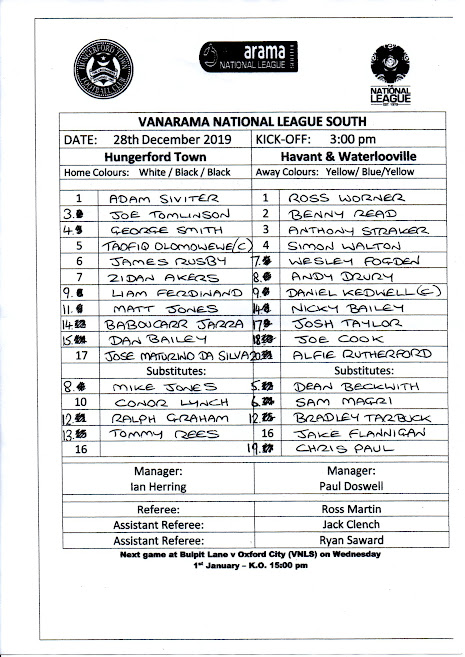 HUNGERFORD TOWN
FOOTBALL CLUB
arama
NATIONAL LEAGUE
THE
NATIONAL
LEAGUE
VANARAMA NATIONAL LEAGUE SOUTH
DATE: 28th December 2019 KICK-OFF: 3:00 pm
Hungerford Town Havant & Waterlooville
Home Colours: White / Black / Black Away Colours: Yellow/ Blue/Yellow
1 ADAM SIVITER 1 ROSS WORNER
3. JOE TOMLINSON 2 BENNY READ
4. GEORGE SMITH 3 ANTHONY STRAKER
5 TAOFIQ OLOMOWEWE(C) 4 SIMON WALTON
6 JAMES RUSBY 7. WESLEY FOGDEN
7 ZIDAN AKERS 8. ANDY DRURY
9. LIAM FERDINAND 9. DANIEL KEDWELL(C)
11. MATT JONES 14. NICKY BAILEY
14. BABOUCARR JARRA 17. JOSH TAYLOR
15. DAN BAILEY 18. JOE COOK
17 JOSE MATURINO DA SILVA 20. ALFIE RUTHERFORD
Substitutes: Substitutes:
8. MIKE JONES 5. DEAN BECKWITH
10 CONOR LYNCH 6. SAM MAGRI
12. RALPH GRAHAM 12. BRADLEY TARBUCK
13. TOMMY REES 16 JAKE FLANNIGAN
16 19. CHRIS PAUL
Manager: Manager:
Ian Herring Paul Doswell
Referee: Ross Martin
Assistant Referee: Jack Clench
Assistant Referee: Ryan Saward
Next game at Bulpit Lane v Oxford City (VNLS) on Wednesday
1st January – K.O. 15:00 pm